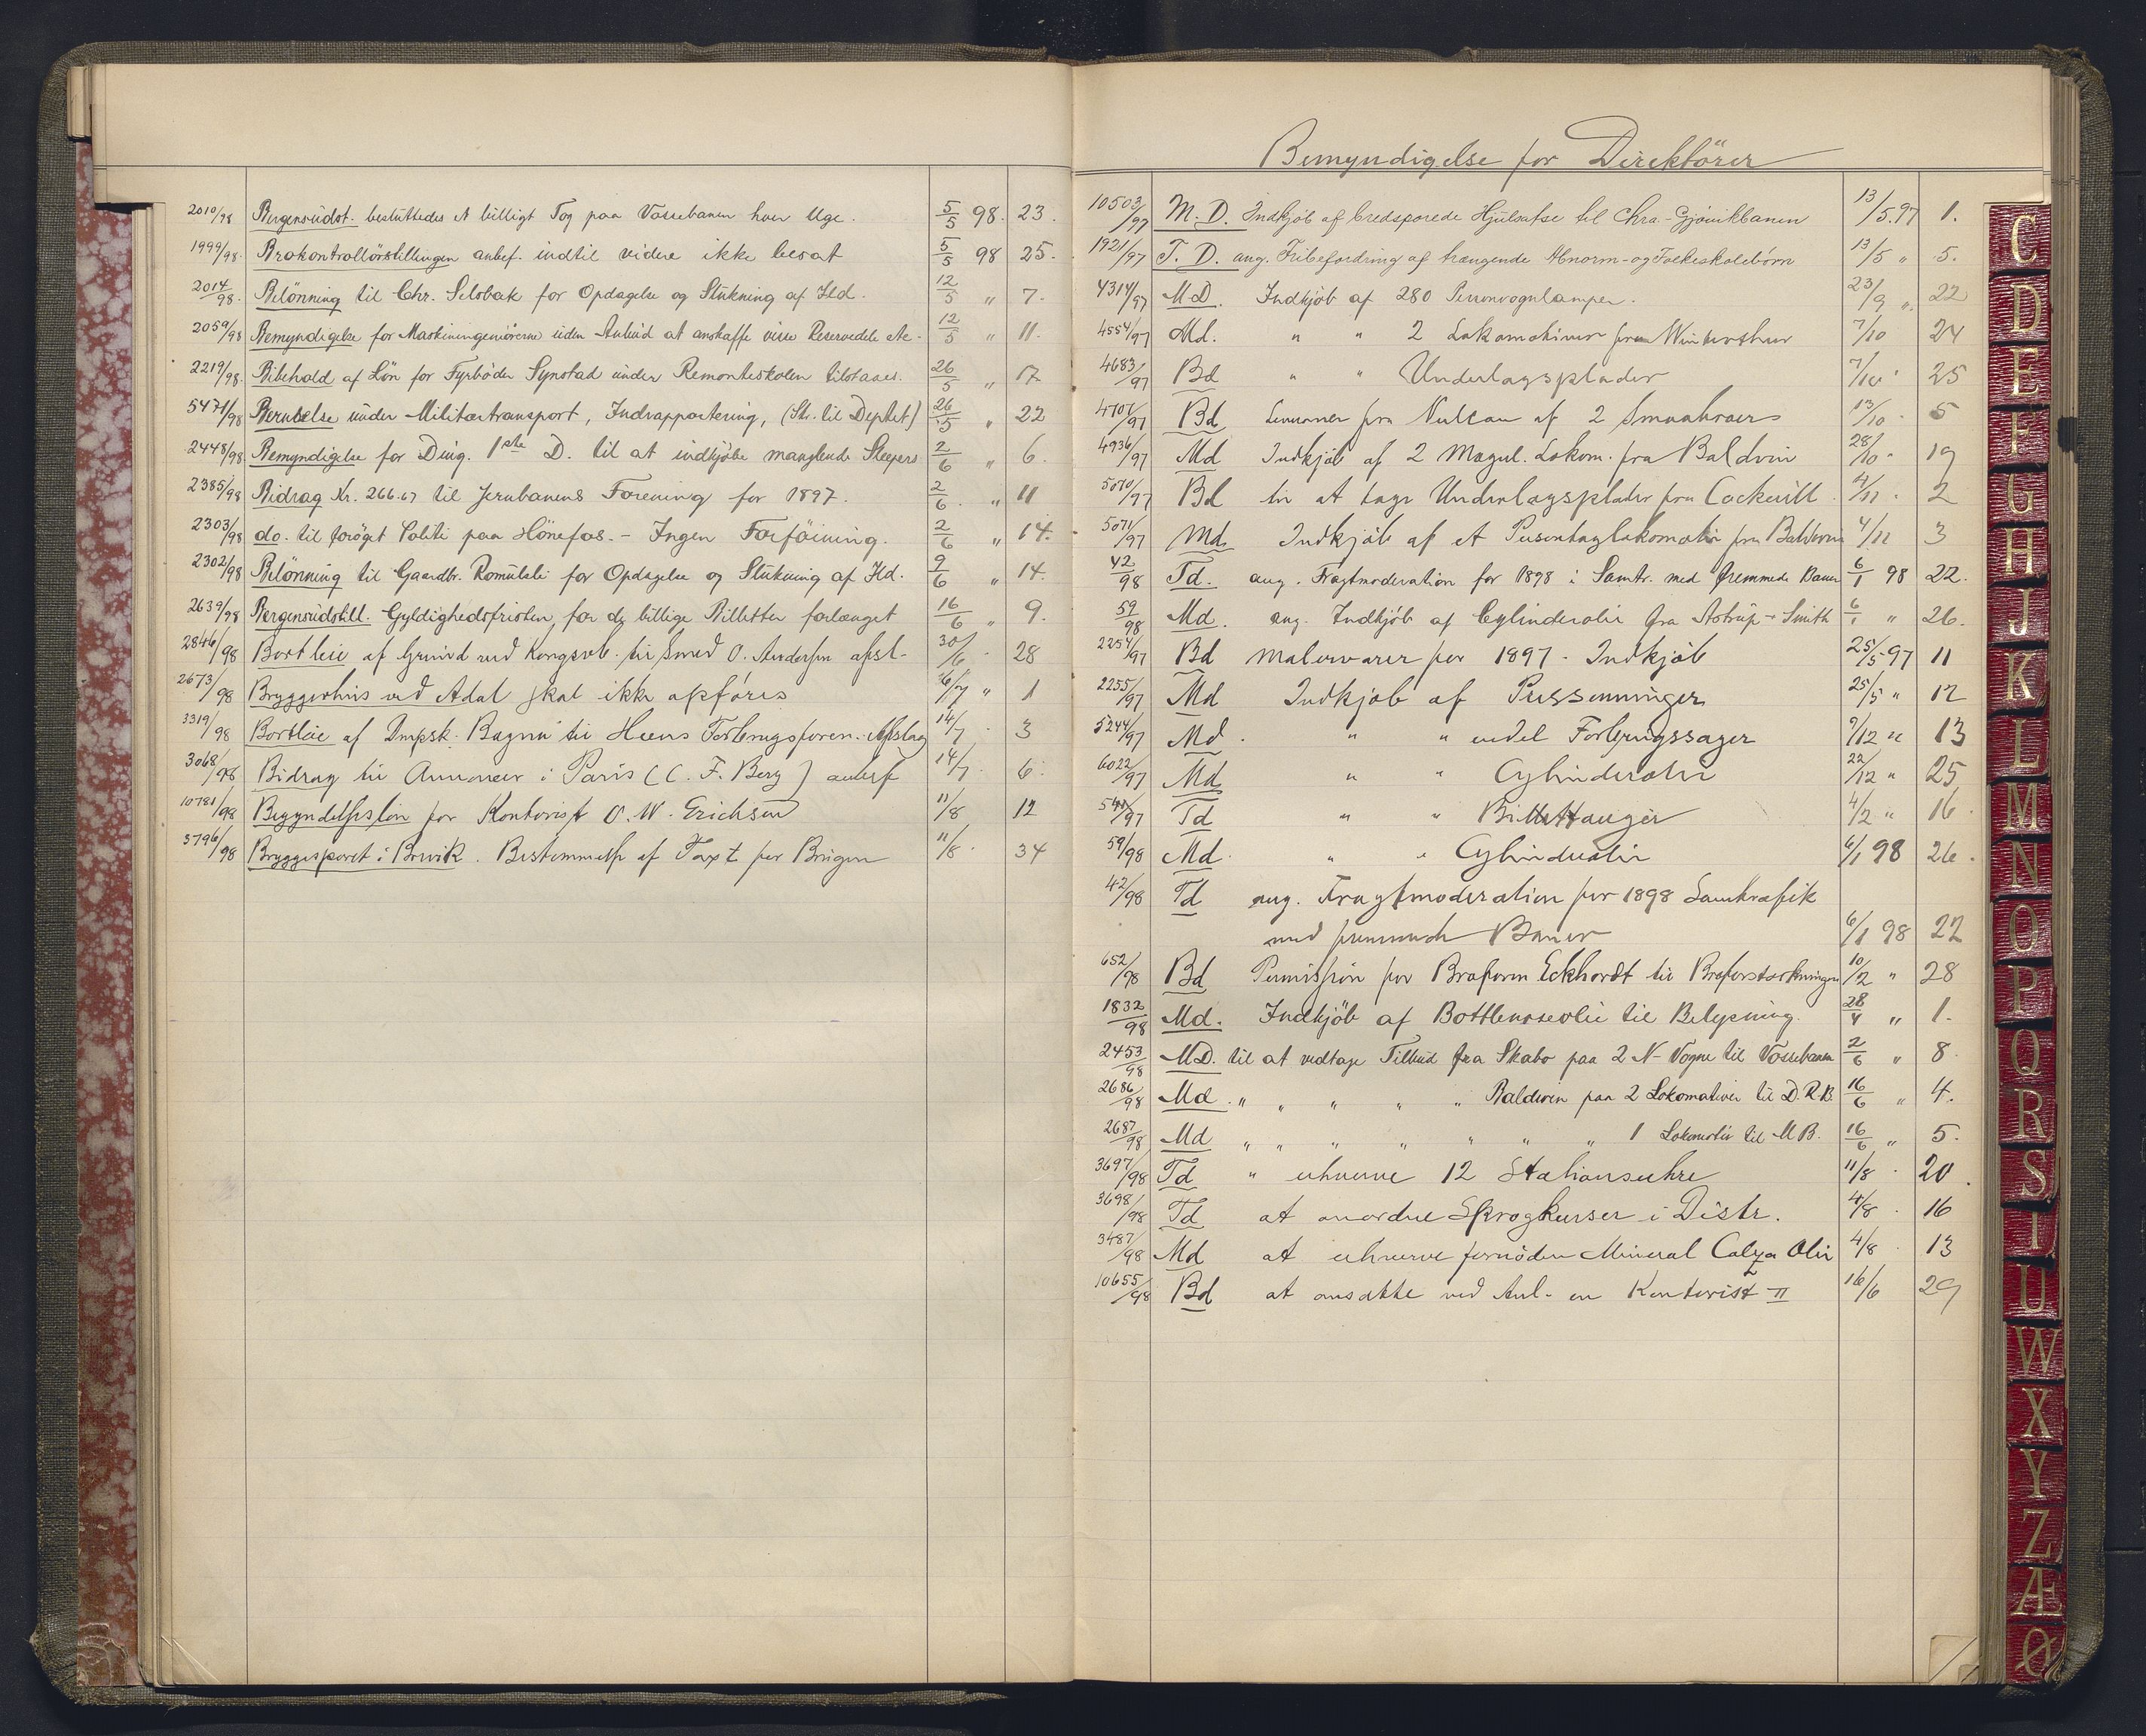 2010/98 Bergensudst. besluttedes et billigt Tog paa Vossebanen hver Uge. 5/5 98. 23.
1999/98. Brokontrollörstillingen anbef. indtil videre ikke besat 5/5 98 25.
2014/98. Belönning til Chr. Selsbak for Opdagelse og Slukning af Ild. 12/5 " 7.
2059/98 Bemyndigelse for Maskiningeniörerne uden Anbud at anskaffe visse Reservedele etc. 12/5 " 11.
2219/98. Bibehold af Lön for Fyrböder Synstad under Remonteskolen tilstaaes. 26/5 " 17
5471/98 Beruselse under Militærtransport, Indrapportering, (Skr. til Deptet) 26/5 " 22
2448/98 Bemyndigelse for Ding. 1ste D. til at indkjöbe manglende Sleepers 2/6 " 6.
2385/98 Bidrag Kr. 266.67 til Jernbanens Forening for 1897. 2/6. " 11
2303/98 do. til foröget Politi paa Hönefos. - Ingen Forföining. 2/6 " 14.
2302/98 Belönning til Gaardbr. Romulsli for Opdagelse og Slukning af Ild. 9/6 " 14.
2639/98 Bergensudstill. Gyldighedsfristen for de billige Billetter forlænget 16/6 " 9.
2846/98 Bortleie af Grund ved Kongsvb. til Smed O. Andersen afsl- 30/6 " 28
2673/98 Bryggerhus ved Adal skal ikke opföres 26/7 " 1
3319/98 Bortleie af Dmpsk. Bagna til Heens Forbrugsforen. Afslag 14/7 " 3
3068/98 Bidrag til Annoncer i Paris (C. F. Berg) anbef 14/7 6.
10781/98 Begyndelseslön for Kontorist O. W. Erichsen 11/8 12
3796/98 Bryggesporet i Brevik. Bestemmelse af Taxt for Brugen 11/8. 34
Bemyndigelse for Direktörer
10503/97 M. D. Indkjöb af bredsporede Hjulsatse til Chra.-Gjövikbanen 13/5.97 1.
1921/97 T. D. ang. Fribefordring af trængende Abnorm- og Folkeskolebörn 13/5 " 5.
4314/97 MD. Indkjöb af 280 Personvognlamper. 23/9 " 22
4554/97 Md. " " 2 Lokomotiver fra Winterthur 7/10 24
4683/97 Bd " " Underlagsplader 7/10 " 25
4707/97 Bd Leverancer fra Vulcan af 2 Smaakraer 13/10 5
4936/97 Md Indkjöb af 2 Mogul. Lokom. fra Baldvin 28/10 " 19
5070/97 Bd til at tage Underlagsplader fra Cockerill 4/11 . 2
5071/97 Md. Indkjöb af et Persontoglokomotiv fra Baldwin 4/11 3
42/98 Td. ang. Fragtmoderation for 1898 i Samtr. med fremmede Baner 6/1 98 22.
59/98 Md. ang. Indkjöb af Cylinderolie fra Astrup & Smith 6/1 " 26.
2254/97 Bd Malervarer for 1897 - Indkjöb 25/5 97 11
2255/97 Md Indkjöb af Presenninger 25/5 " 12
5244/97 Md. " " endel Forbrugssager 9/12 " 13
6022/97 Md " " Cylinderolie 22/12 " 25
541/97 Td " " Billettanger 4/2 " 16
59/98 Md. " " Cylinderolie 6/1 98 26.
42/98 Td ang. Fragtmoderation for 1898 Samtrafik
med fremmede Baner 6/1 98 22
652/98 Bd Permission for Broform Eckhardt til Broforstærkninger 10/2 " 28
1832/98 Md. Indkjöb af Bottlenoseolie til Belysning. 28/4 " 1.
2453/98 MD. til at vedtage Tilbud fra Skabo paa 2 N-Vogne til Vossebanen 2/6 " 8
2686/98 Md. " " " " " Baldwin paa 2 Lokomotiver til D.R.B. 16/6 " 4.
2687/98 Md " " " " " " " 1 Lokomotiv til M B. 16/6 " 5.
3697/98 Td " erhverve 12 Stationsuhre 11/8 . 20.
3698/98 Td at anordne Sprogkurser i Distr. 4/8 . 16
3487/98 Md at erhverve fornöden Mineral Calza Olie 4/8 13
10655/98 Bd at ansætte ved Anl. en Kontorist II 16/6 29
C
D
E
F
G
H
J
K
L
M
N
O
P
Q
R
S
T
U
W
X
Y
Z
Æ
Ø